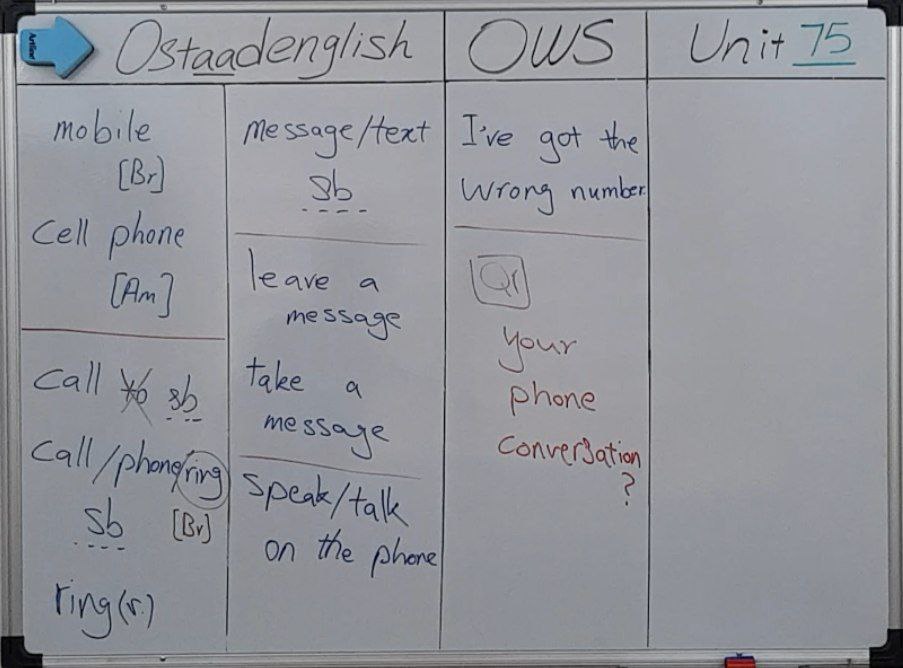 Artline
Ostaadenglish
OWS
Unit 75
mobile
[Br]
Cell phone
[Am]
Call to sb
Call/phone/ring
sb [Br]
ring (r.)
message/text
sb
leave a
message
take a
message
speak/talk
on the phone
I've got the
wrong number
Qr
your
phone
conversation
?